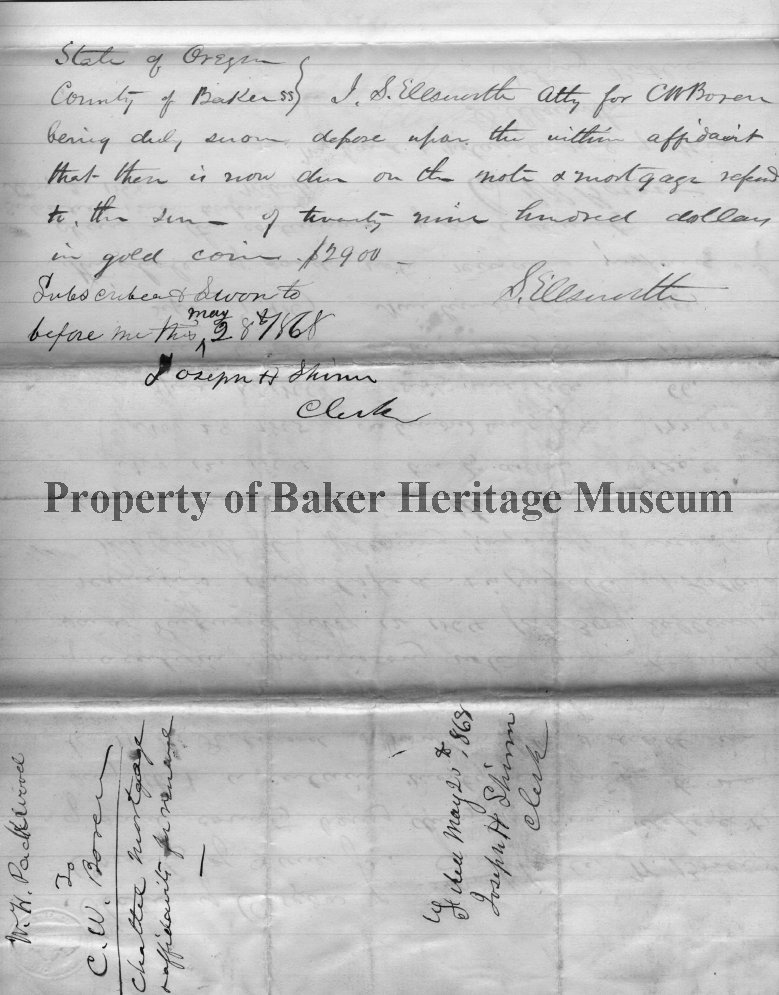 State of Oregon
County of Baker ss } I. S. Ellsworth Atty for C W Boren
being duly sworn depose upon the within affidavit
that there is now due on the note & mortgage refered
to, the sum of twenty nine hundred dollars
in gold coin $2900 –
Subscribed & Sworn to
S. Ellsworth
before me this may 28th 1868
Joseph H Shinn
Clerk
Property of Baker Heritage Museum
W. H. Packwood
To
C. W. Boren
Chattel Mortgage
& affidavits for renewal
Filed May 25th 1868
Joseph H Shinn
Clerk